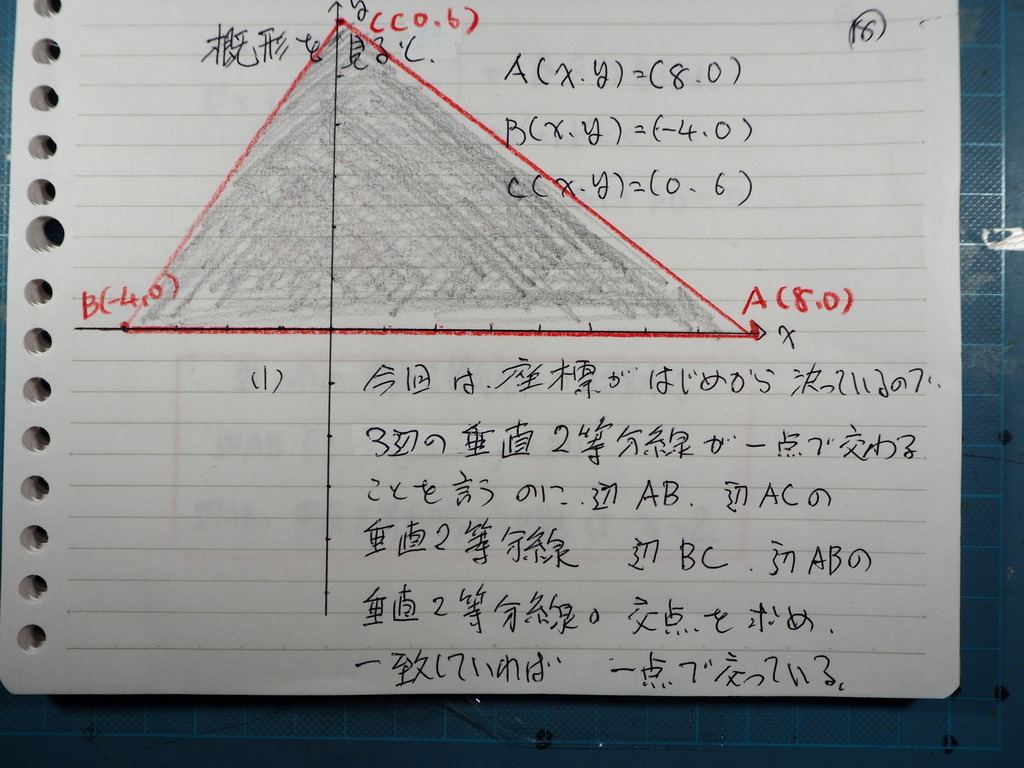 y
C(0.6)
⑱
概形を見ると、
A(x.y)=(8.0)
B(x.y)=(-4.0)
C(x.y)=(0.6)
B(-4.0)
A(8.0)
x
(1) 今回は、座標がはじめから決っているので、
3辺の垂直2等分線が一点で交わる
ことを言うのに、辺AB、辺ACの
垂直2等分線 辺BC、辺ABの
垂直2等分線の交点を求め、
一致していれば 一点で交っている。